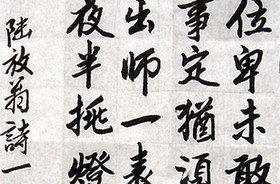 位卑未敢
事定猶須
出师一表
夜半挑燈
陆放翁詩一